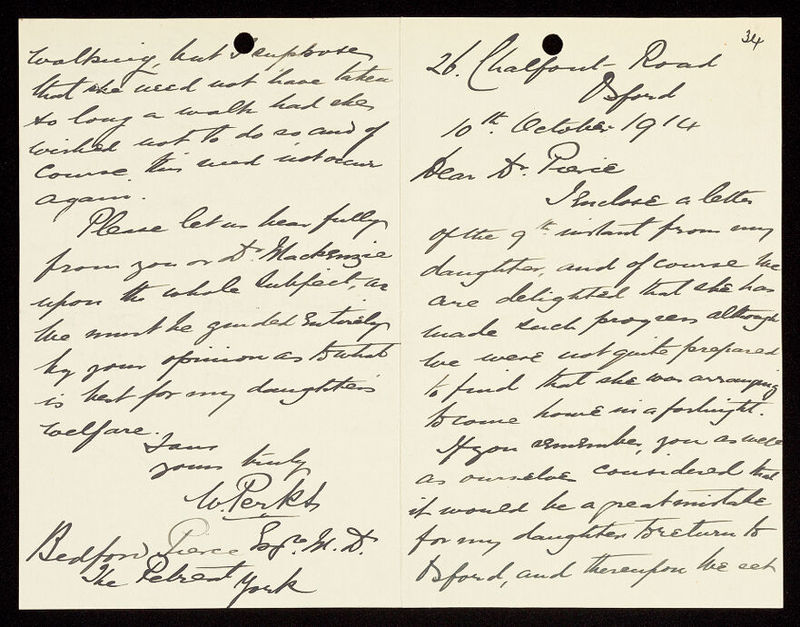 34
26. Chalfont Road
Oxford
10th. October 1914
Dear Dr. Pierce
I enclose a letter
of the 9th instant from my
daughter, and of course we
are delighted that she has
made such progress although
we were not quite prepared
to find that she was arranging
to come home in a fortnight.
If you remember, you as well
as ourselves considered that
it would be a great mistake
for my daughter to return to
Oxford, and thereupon we set
walking, but I suppose
that she need not have taken
so long a walk had she
wished not to do so and of
course this need not occur
again.
Please let us hear fully
from you or Dr. Mackenzie
upon the whole subject, as
we must be guided entirely
by your opinion as to what
is best for my daughter's
welfare.
I am
yours truly
W Perkts
Bedford Pierce Esqre. M.D.
The Retreat
York